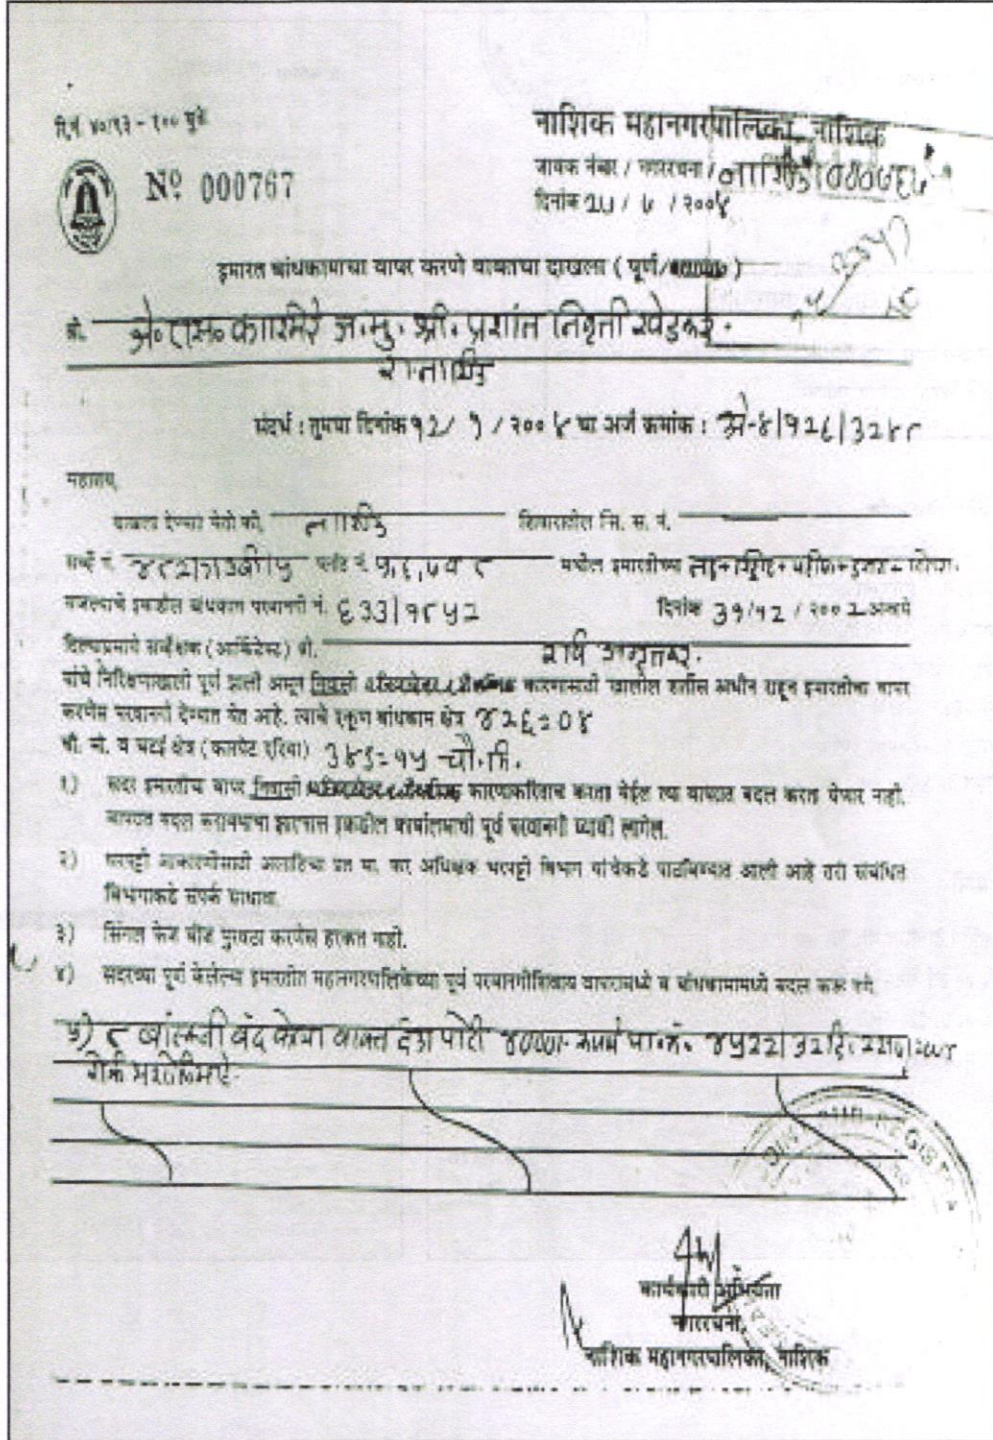 नाशिक महानगरपालिका, नाशिक
जावक नंबर / नगररचना /
दिनांक २५ / ७ / २००४
Nº 000767
इमारत बांधकामाचा वापर करणे बाबतचा दाखला ( पूर्ण/ )
श्री. जे. एस. काश्मिरे ज.मु. श्री. प्रशांत निवृत्ती खेडकर.
रा. नाशिक
संदर्भ : तुमचा दिनांक १२/ १ / २००४ चा अर्ज क्रमांक : अे-४/१२६/३२४८
महाशय,
दाखला देण्यात येतो की, नाशिक शिवारातील सि. स. नं.
सर्व्हे नं. प्लॉट नं. मधील इमारतीच्या
मजल्याचे इकडील बांधकाम परवानगी नं. ६३३/१८५२ दिनांक ३१/१२ / २००२ अन्वये
दिल्याप्रमाणे सर्व्हेक्षक ( आर्किटेक्ट ) श्री.
यांचे निरिक्षणाखाली पूर्ण झाली असून निवासी कारणासाठी खालील शर्तीस आधीन राहून इमारतीचा वापर
करणेस परवानगी देण्यात येत आहे. त्याचे एकूण बांधकाम क्षेत्र ४२६=०४
चौ. मी. व चटई क्षेत्र ( कारपेट एरिया ) ३४६=१५ चौ.मि.
१) सदर इमारतीचा वापर निवासी कारणाकरिताच करता येईल त्या वापरात बदल करता येणार नाही.
वापरात बदल करावयाचा झाल्यास इकडील कार्यालयाची पूर्व परवानगी घ्यावी लागेल.
२) घरपट्टी आकारणीसाठी अलाहिदा प्रत मा. कर अधिक्षक घरपट्टी विभाग यांचेकडे पाठविण्यात आली आहे तरी संबंधित
विभागाकडे संपर्क साधावा.
३) सिंगल फेज वीज पुरवठा करणेस हरकत नाही.
४) सदरच्या पूर्ण केलेल्या इमारतीत महानगरपालिकेच्या पूर्व परवानगीशिवाय वापरामध्ये व बांधकामामध्ये बदल करू नये
५) ८ बाल्कनी बंद केल्या बाबत दंडा पोटी
कार्यकारी अभियंता
नगररचना,
नाशिक महानगरपालिका, नाशिक